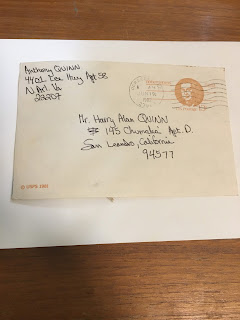 Anthony QUINN
4401 Lee Hwy Apt 58
N Arl. Va
22207
Mr. Harry Alan QUINN
195 "Chumalia" Apt. D.
San Leandro, California
94577
© USPS 1981